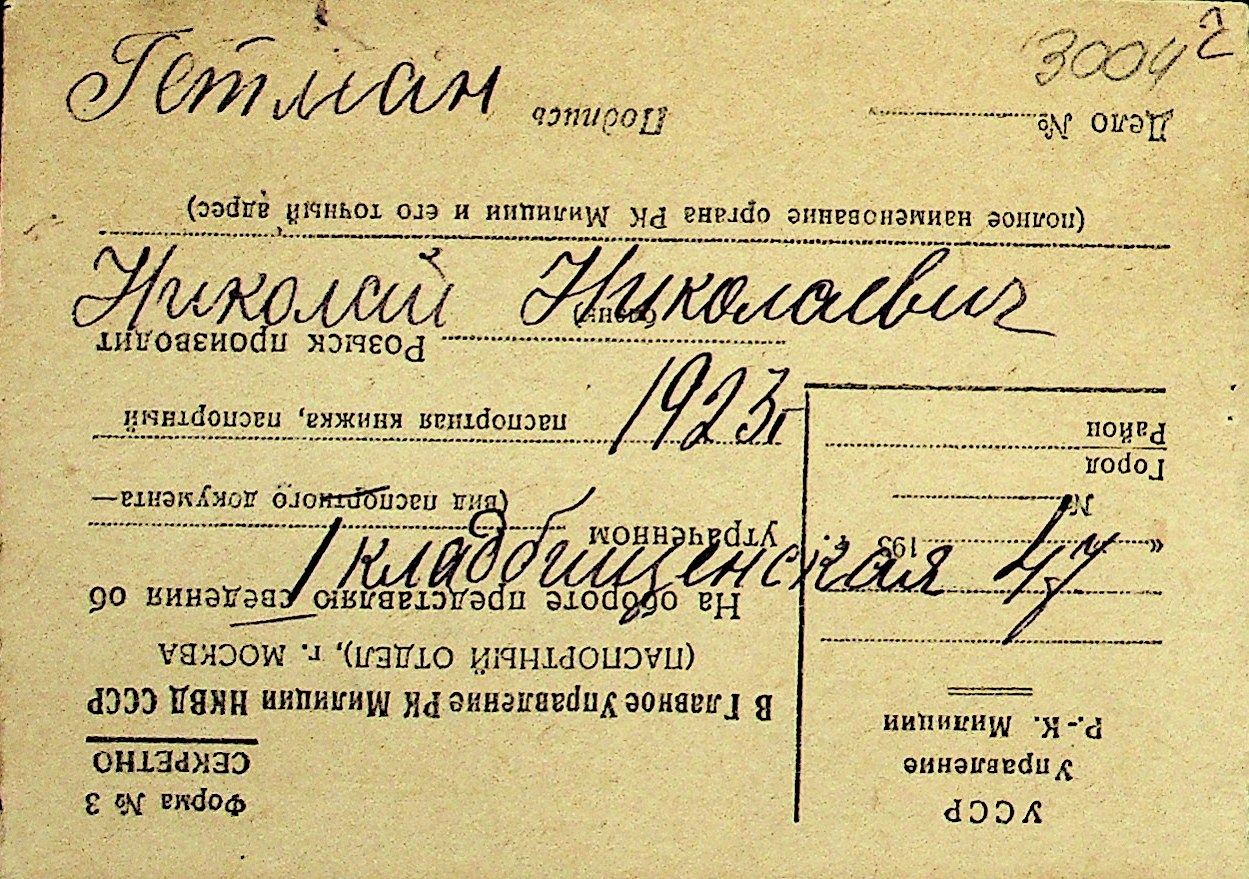 Гетман
3004
Николай Николаевич
1923 г
1 кладбищенская 47
УССР
Управление
Р.-К. Милиции
« 193 г.
№
Город
Район
Форма № 3
СЕКРЕТНО
В Главное Управление РК Милиции НКВД СССР
(ПАСПОРТНЫЙ ОТДЕЛ), г. МОСКВА
На обороте представляю сведения об
утраченном
(вид паспортного документа—
паспортная книжка, паспортный
Розыск производит
(полное наименование органа РК Милиции и его точный адрес)
Дело № Подпись